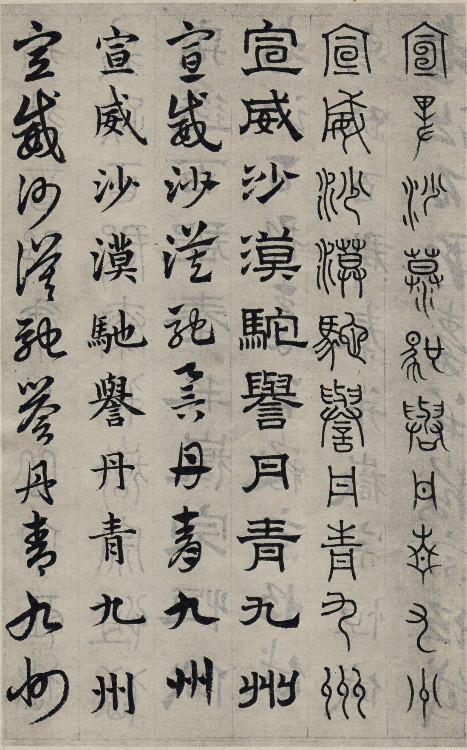 宣威沙漠馳譽丹青九州
宣威沙漠馳譽丹青九州
宣威沙漠馳譽丹青九州
宣威沙漠馳譽丹青九州
宣威沙漠馳譽丹青九州
宣威沙漠馳譽丹青九州